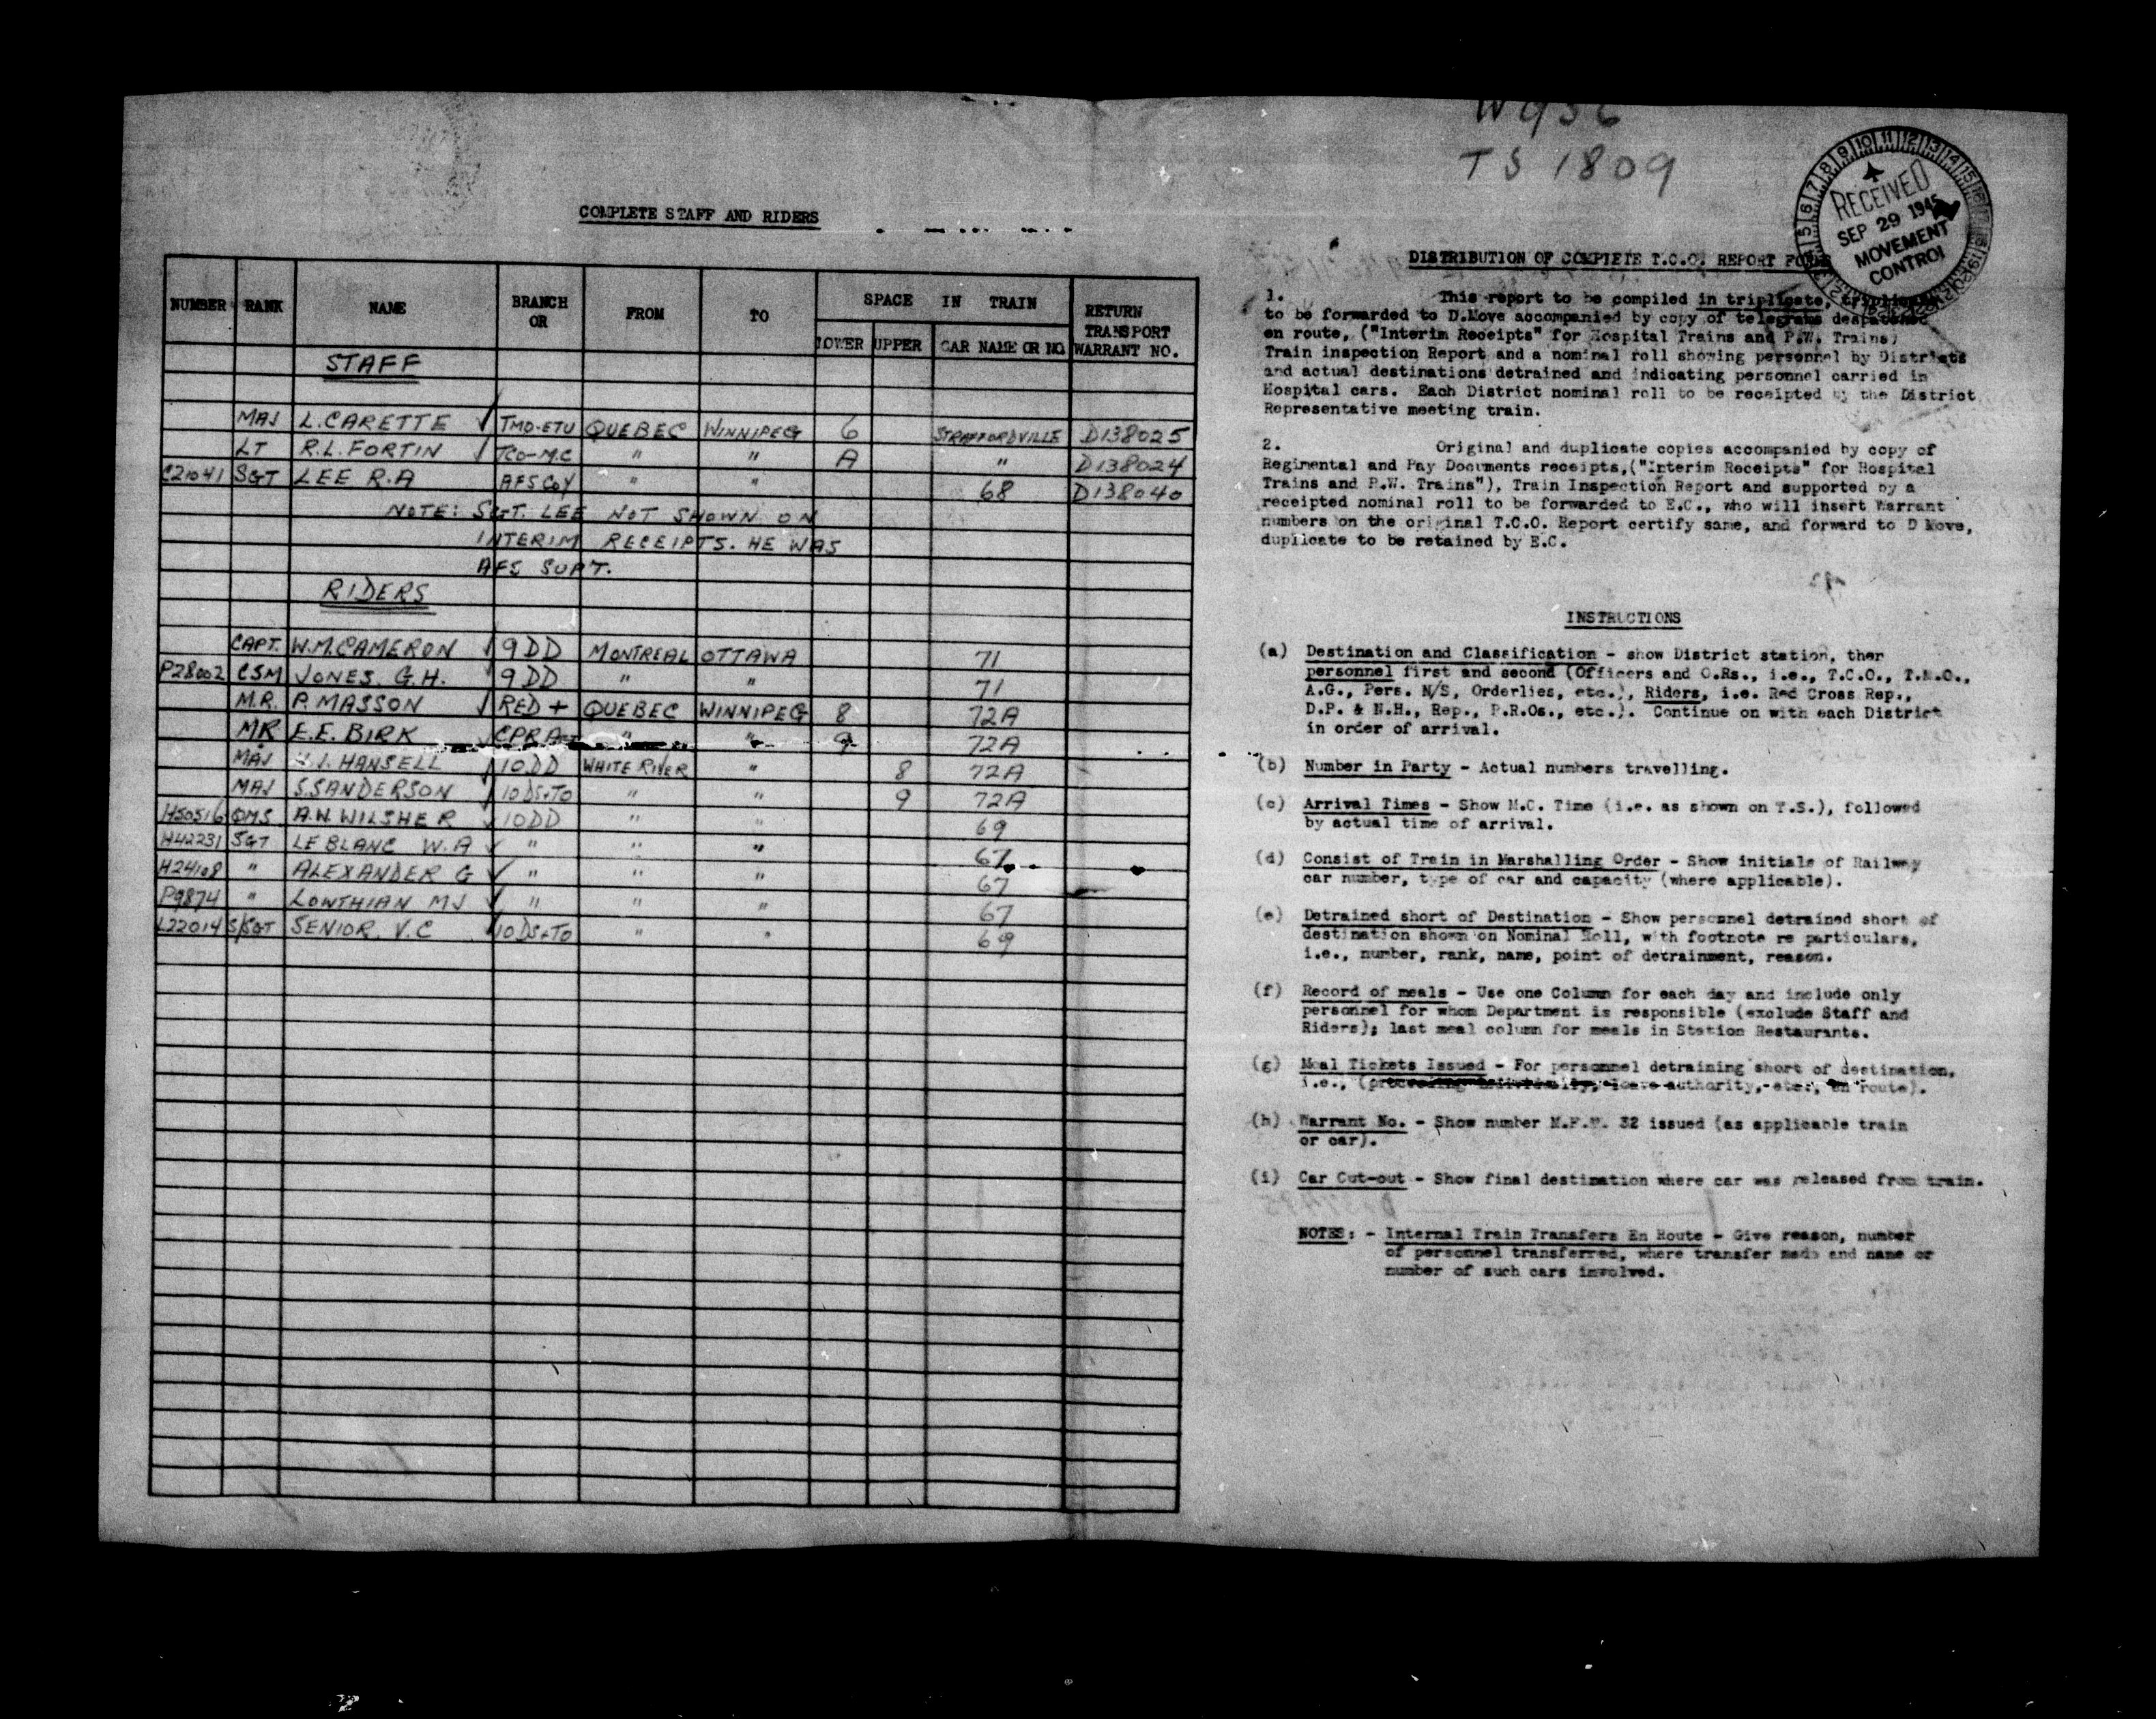 COMPLETE STAFF AND RIDERS
NUMBER RANK NAME BRANCH OR FROM TO SPACE IN TRAIN RETURN TRANSPORT WARRANT NO.
LOWER UPPER CAR NAME OR NO
STAFF
MAJ L. CARETTE ✓ TMO-ETU QUEBEC WINNIPEG 6 STRAFFORDVILLE D138025
LT R.L. FORTIN ✓ TCO-M.C " " A " D138024
C21041 SGT LEE R.A AFS COY " " 68 D138040
NOTE: SGT. LEE NOT SHOWN ON
INTERIM RECEIPTS. HE WAS
AFS SUPT.
RIDERS
CAPT. W.M. CAMERON ✓ 9 DD MONTREAL OTTAWA 71
P28002 CSM JONES. G.H. 9 DD " " 71
M.R. P. MASSON ✓ RED + QUEBEC WINNIPEG 8 72A
MR E.E. BIRK ✓ CPR " " 9 72A
MAJ HANSELL ✓ 10 DD WHITE RIVER " 8 72A
MAJ S. SANDERSON ✓ 10 DS+TO " " 9 72A
H50516 QMS A.W. WILSHER ✓ 10 DD " " 69
H42231 SGT LEBLANC W.A ✓ " " " 67
H24108 " ALEXANDER G ✓ " " " 67
P9874 " LOWTHIAN MJ ✓ " " " 67
L22014 S/SGT SENIOR. V.C ✓ 10 DS+TO " " 69
W936
TS 1809
RECEIVED
SEP 29 1945
MOVEMENT
CONTROL
DISTRIBUTION OF COMPLETE T.C.O. REPORT
1. This report to be compiled in triplicate,
to be forwarded to D.Move accompanied by copy of telegrams despatched
en route, ("Interim Receipts" for Hospital Trains and P.W. Trains)
Train inspection Report and a nominal roll showing personnel by Districts
and actual destinations detrained and indicating personnel carried in
Hospital cars. Each District nominal roll to be receipted by the District
Representative meeting train.
2. Original and duplicate copies accompanied by copy of
Regimental and Pay Documents receipts,("Interim Receipts" for Hospital
Trains and P.W. Trains"), Train Inspection Report and supported by a
receipted nominal roll to be forwarded to E.C., who will insert Warrant
numbers on the original T.C.O. Report certify same, and forward to D Move,
duplicate to be retained by E.C.
INSTRUCTIONS
(a) Destination and Classification - show District station, ther
personnel first and second (Officers and O.Rs., i.e., T.C.O., T.M.O.,
A.G., Pers. N/S, Orderlies, etc.), Riders, i.e. Red Cross Rep.,
D.P. & N.H., Rep., P.R.Os., etc.). Continue on with each District
in order of arrival.
(b) Number in Party - Actual numbers travelling.
(c) Arrival Times - Show M.C. Time (i.e. as shown on T.S.), followed
by actual time of arrival.
(d) Consist of Train in Marshalling Order - Show initials of Railway
car number, type of car and capacity (where applicable).
(e) Detrained short of Destination - Show personnel detrained short of
destination shown on Nominal Roll, with footnote re particulars,
i.e., number, rank, name, point of detrainment, reason.
(f) Record of meals - Use one Column for each day and include only
personnel for whom Department is responsible (exclude Staff and
Riders); last meal column for meals in Station Restaurants.
(g) Meal Tickets Issued - For personnel detraining short of destination,
i.e., (proceeding individually, leave authority, etc., en route).
(h) Warrant No. - Show number M.F.W. 32 issued (as applicable train
or car).
(i) Car Cut-out - Show final destination where car was released from train.
NOTES: - Internal Train Transfers En Route - Give reason, number
of personnel transferred, where transfer made and name or
number of such cars involved.